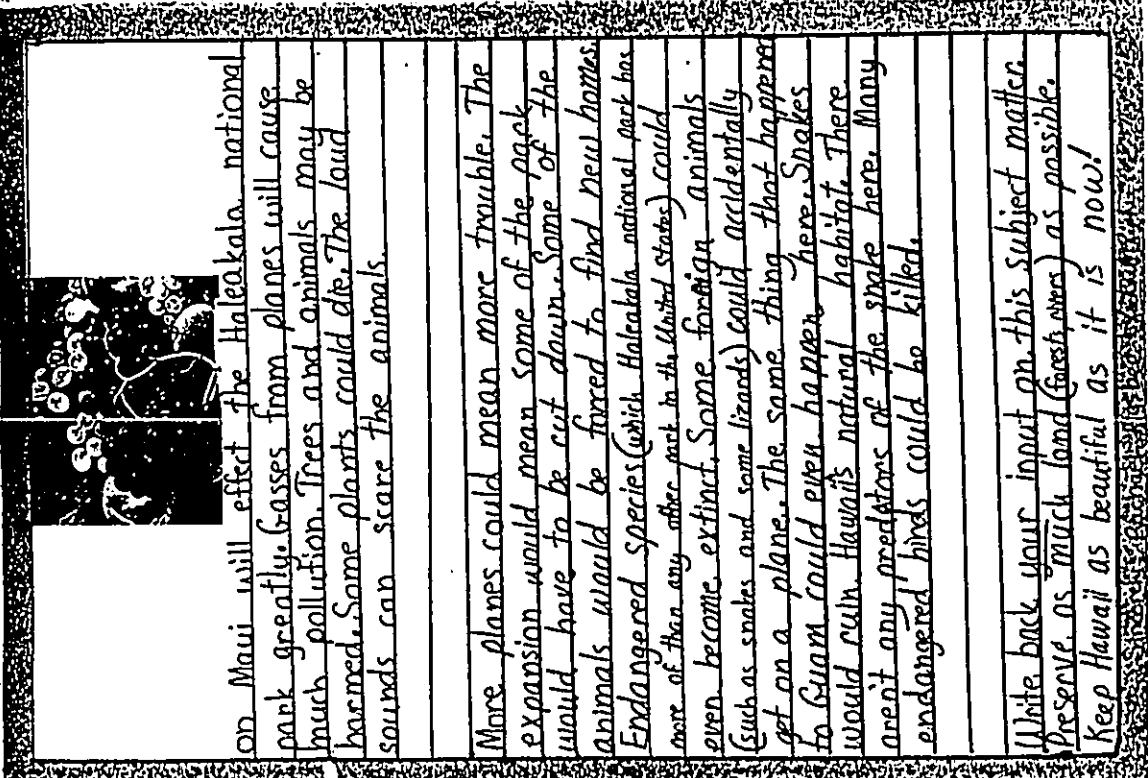 on Maui will effect the Haleakala national
park greatly. Gasses from planes will cause
much pollution. Trees and animals may be
harmed. Some plants could die. The loud
sounds can scare the animals.
More planes could mean more trouble. The
expansion would mean some of the park
would have to be cut down. Some of the
animals would be forced to find new homes.
Endangered species (which Haleakala national park has
more of than any other park in the United States) could
even become extinct. Some foreign animals
(such as snakes and some lizards) could accidentally
get on a plane. The same thing that happened
to Guam could even happen here. Snakes
would ruin Hawaii's natural habitat. There
aren't any predators of the snake here. Many
endangered birds could be killed.
Write back your input on this subject matter.
Preserve as much land (forests, ) as possible.
Keep Hawaii as beautiful as it is now!